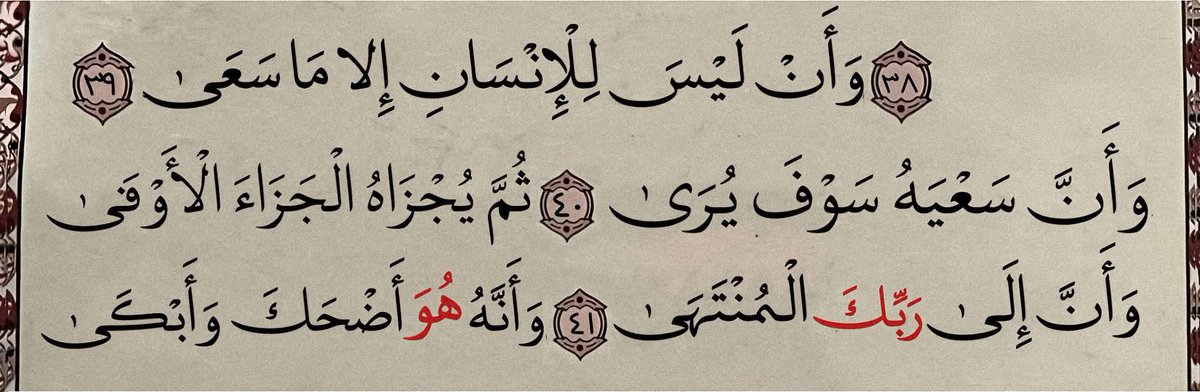 ٣٨ وَأَنْ لَيْسَ لِلْإِنْسَانِ إِلا مَا سَعَىٰ ٣٩
وَأَنَّ سَعْيَهُ سَوْفَ يُرَىٰ ٤٠ ثُمَّ يُجْزَاهُ الْجَزَاءَ الْأَوْفَىٰ
وَأَنَّ إِلَىٰ رَبِّكَ الْمُنْتَهَىٰ ٤١ وَأَنَّهُ هُوَ أَضْحَكَ وَأَبْكَىٰ